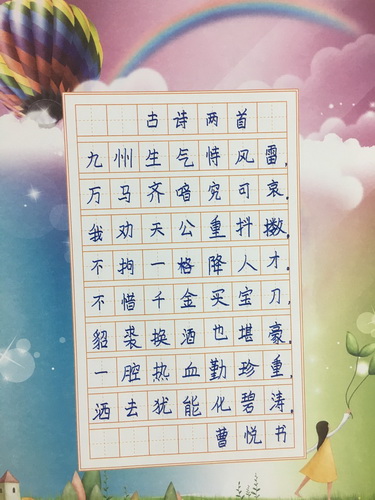 古诗两首
九州生气恃风雷,
万马齐喑究可哀,
我劝天公重抖擞,
不拘一格降人才,
不惜千金买宝刀,
貂裘换酒也堪豪,
一腔热血勤珍重,
洒去犹能化碧涛,
曹悦书